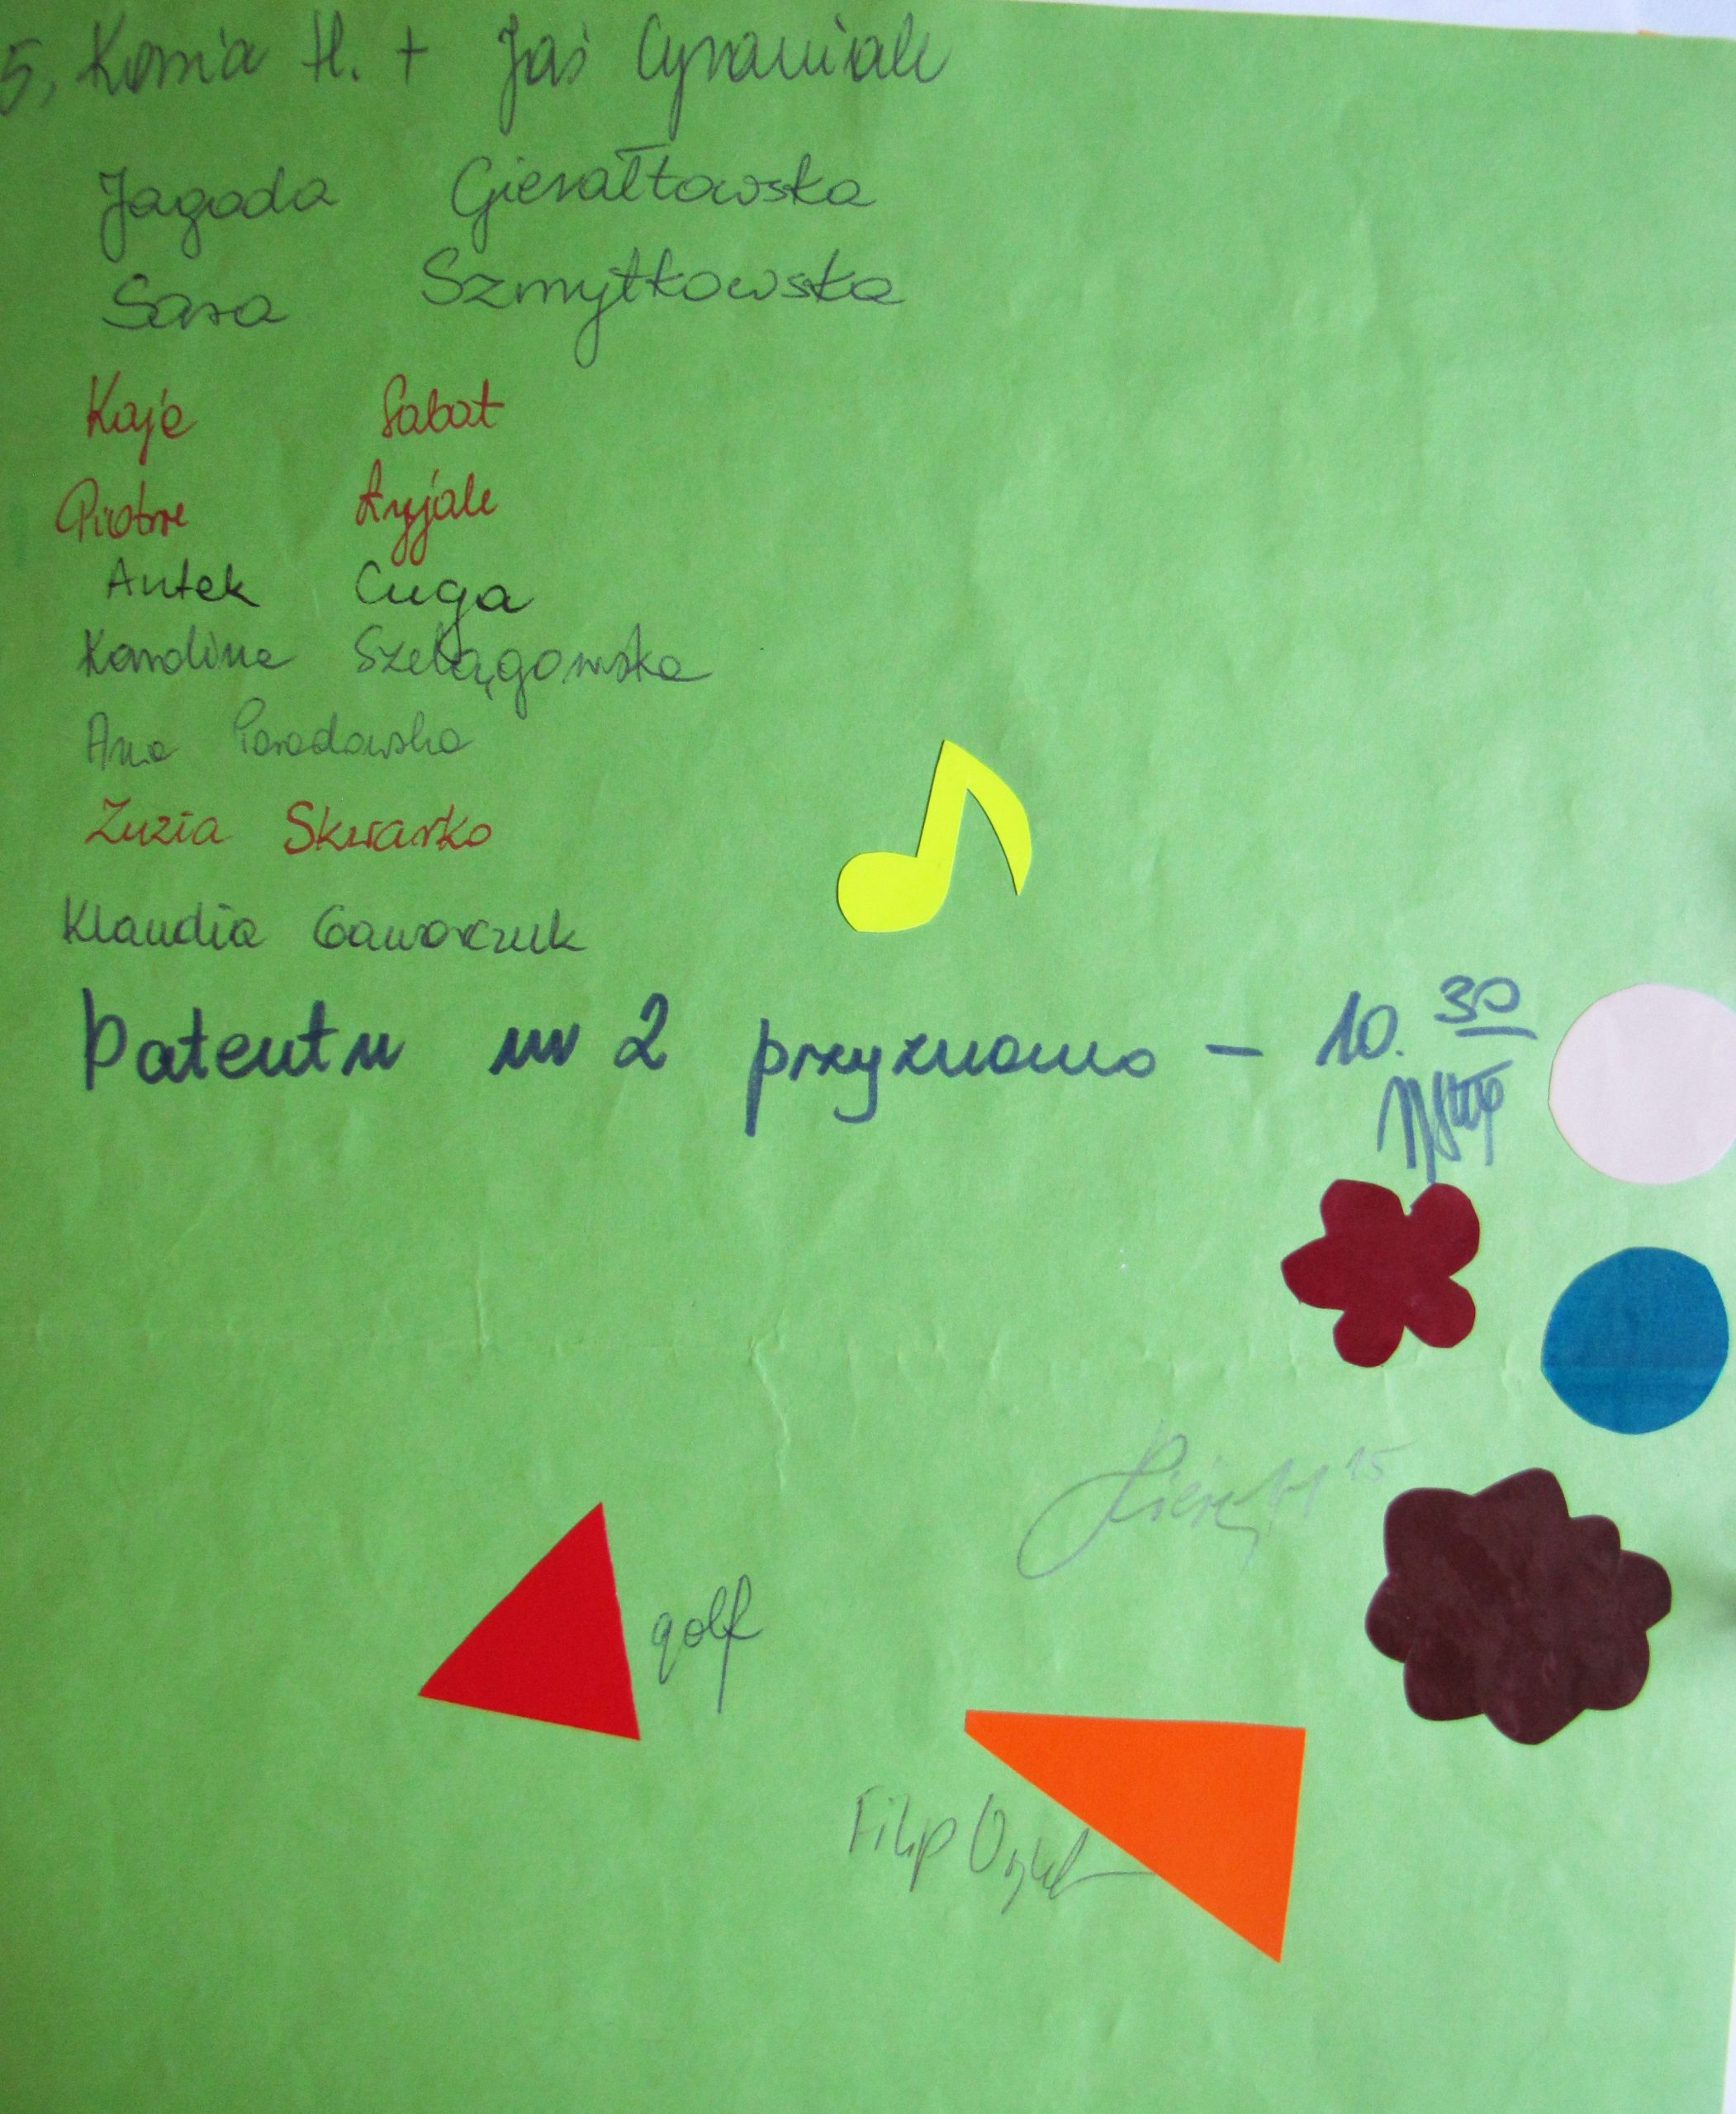 5, Kamia H. + Jaś Cyraniak
Jagoda Gierałtowska
Sara Szmytkowska
Kaja Sabat
Piotr
Antek Cuga
Karolina Szelągowska
Ana Paradowska
Zuzia Skwarko
Klaudia Gaworczuk
Patentu nr 2 przyznano - 10.30
11 15
golf
Filip